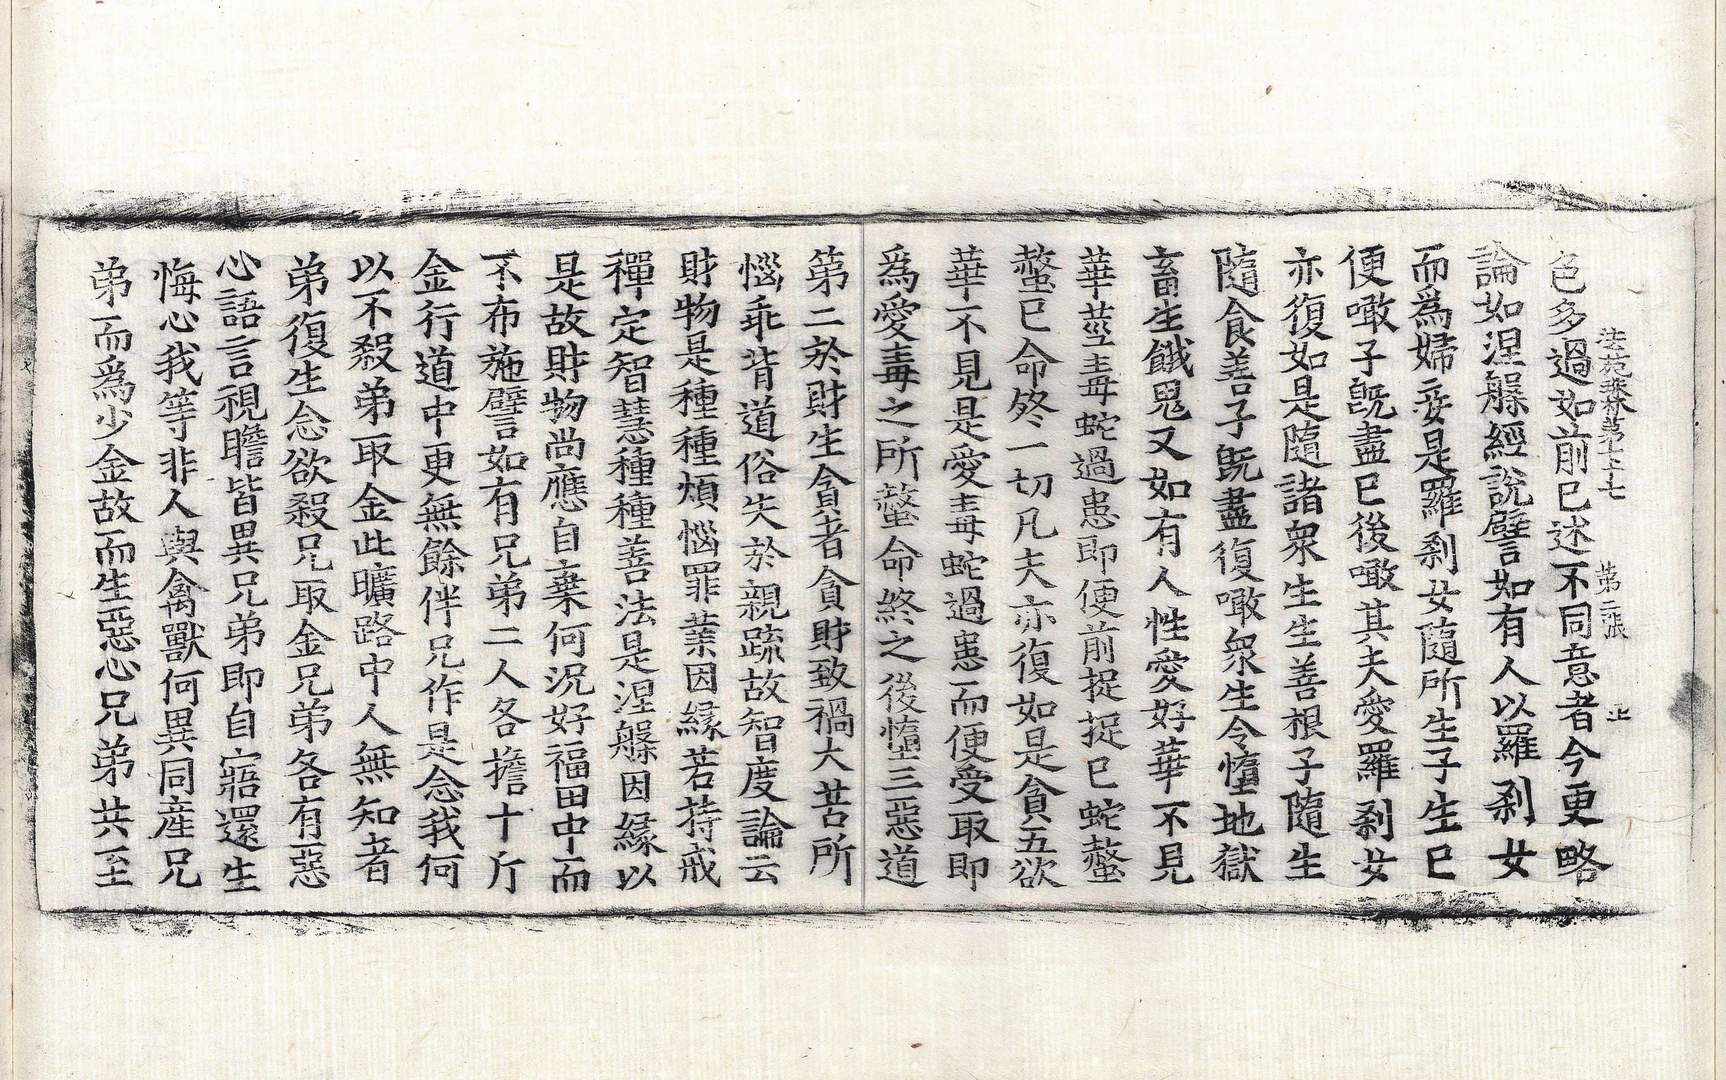 法苑珠林第七十七 第二張 㘴
色多過如前已述不同意者今更略
論如涅槃經說譬如有人以羅刹女
而爲婦妾是羅刹女隨所生子生已
便噉子旣盡已後噉其夫愛羅刹女
亦復如是隨諸衆生生善根子隨生
隨食善子旣盡復噉衆生令墮地獄
畜生餓鬼又如有人性愛好華不見
華莖毒蛇過患即便前捉捉已蛇螫
螫已命終一切凡夫亦復如是貪五欲
華不見是愛毒蛇過患而便受取即
爲愛毒之所螫命終之後墮三惡道
第二於財生貪者貪財致禍大苦所
惱乖背道俗失於親疏故智度論云
財物是種種煩惱罪業因縁若持戒
禪定智慧種種善法是涅槃因縁以
是故財物尚應自棄何況好福田中而
不布施譬如有兄弟二人各擔十斤
金行道中更無餘伴兄作是念我何
以不殺弟取金此曠路中人無知者
弟復生念欲殺兄取金兄弟各有惡
心語言視瞻皆異兄弟即自寤還生
悔心我等非人與禽獸何異同産兄
弟而爲少金故而生惡心兄弟共至